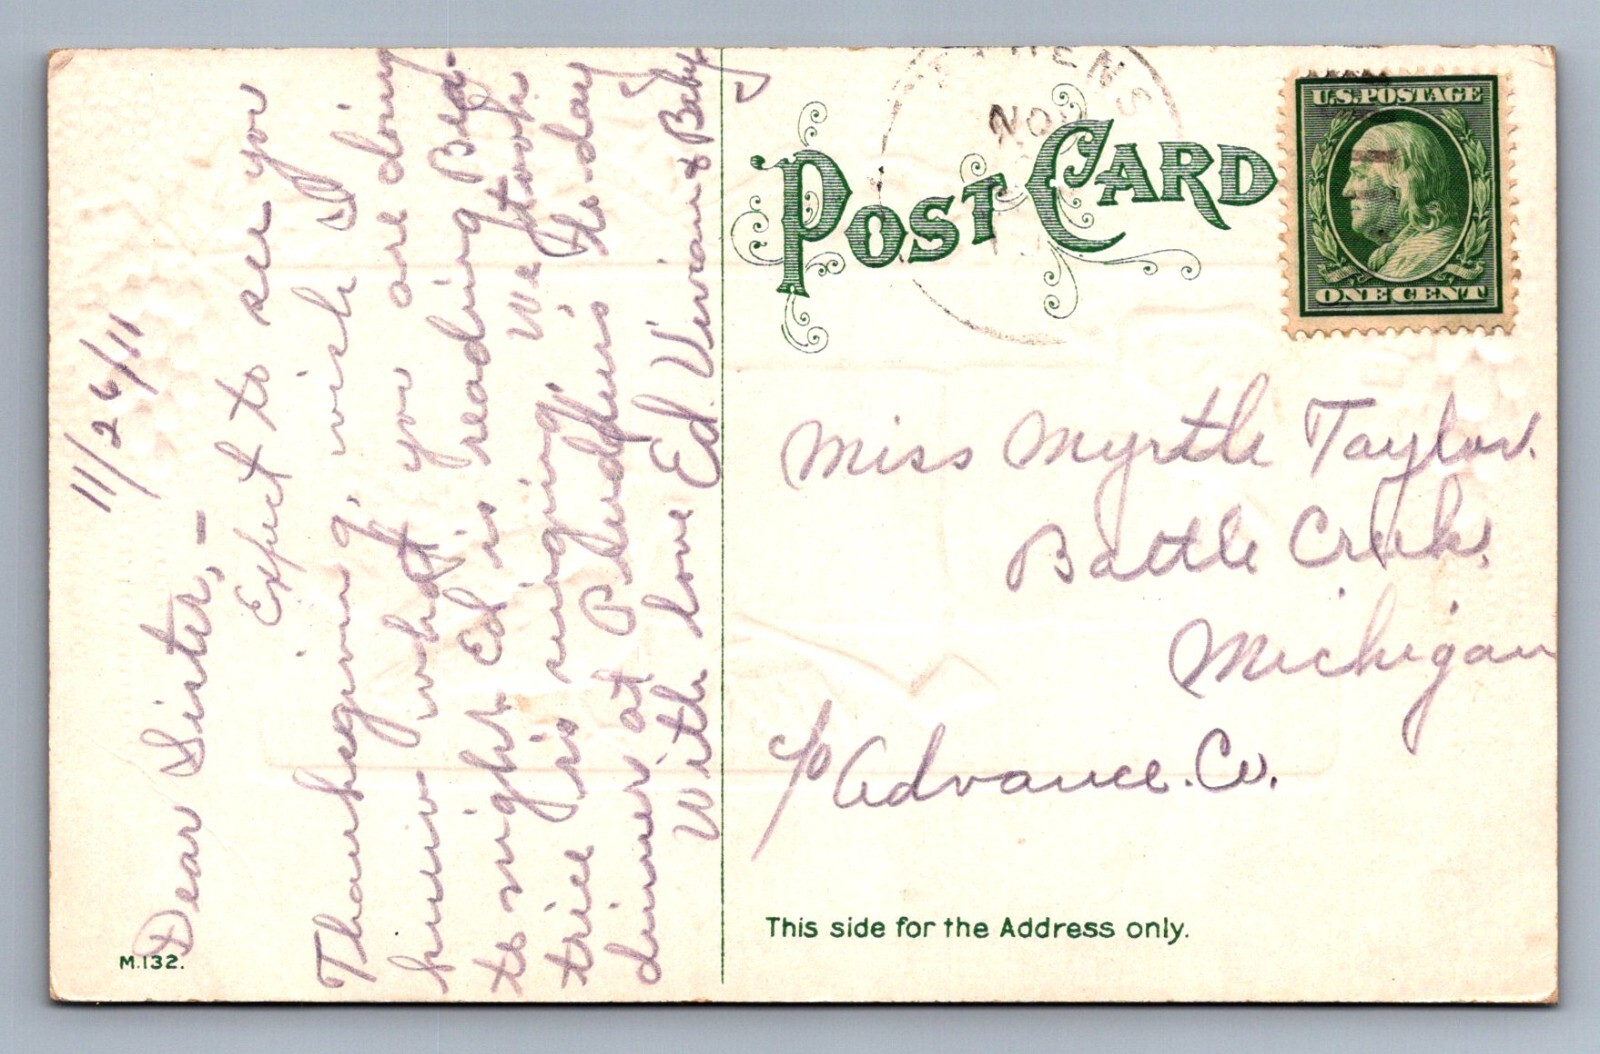 11/26/11
Dear Sister, —
Expect to see you
Thanksgiving, wish I
knew what you are doing
to night Ed is reading
trice is singing. We took
dinner at to day
With love Ed. Vivian & Baby
M.132.
POST CARD
ATHENS
NOV
U.S. POSTAGE
ONE CENT
Miss Myrtle Taylor.
Battle Creek,
Michigan
c/o Advance. Co.
This side for the Address only.